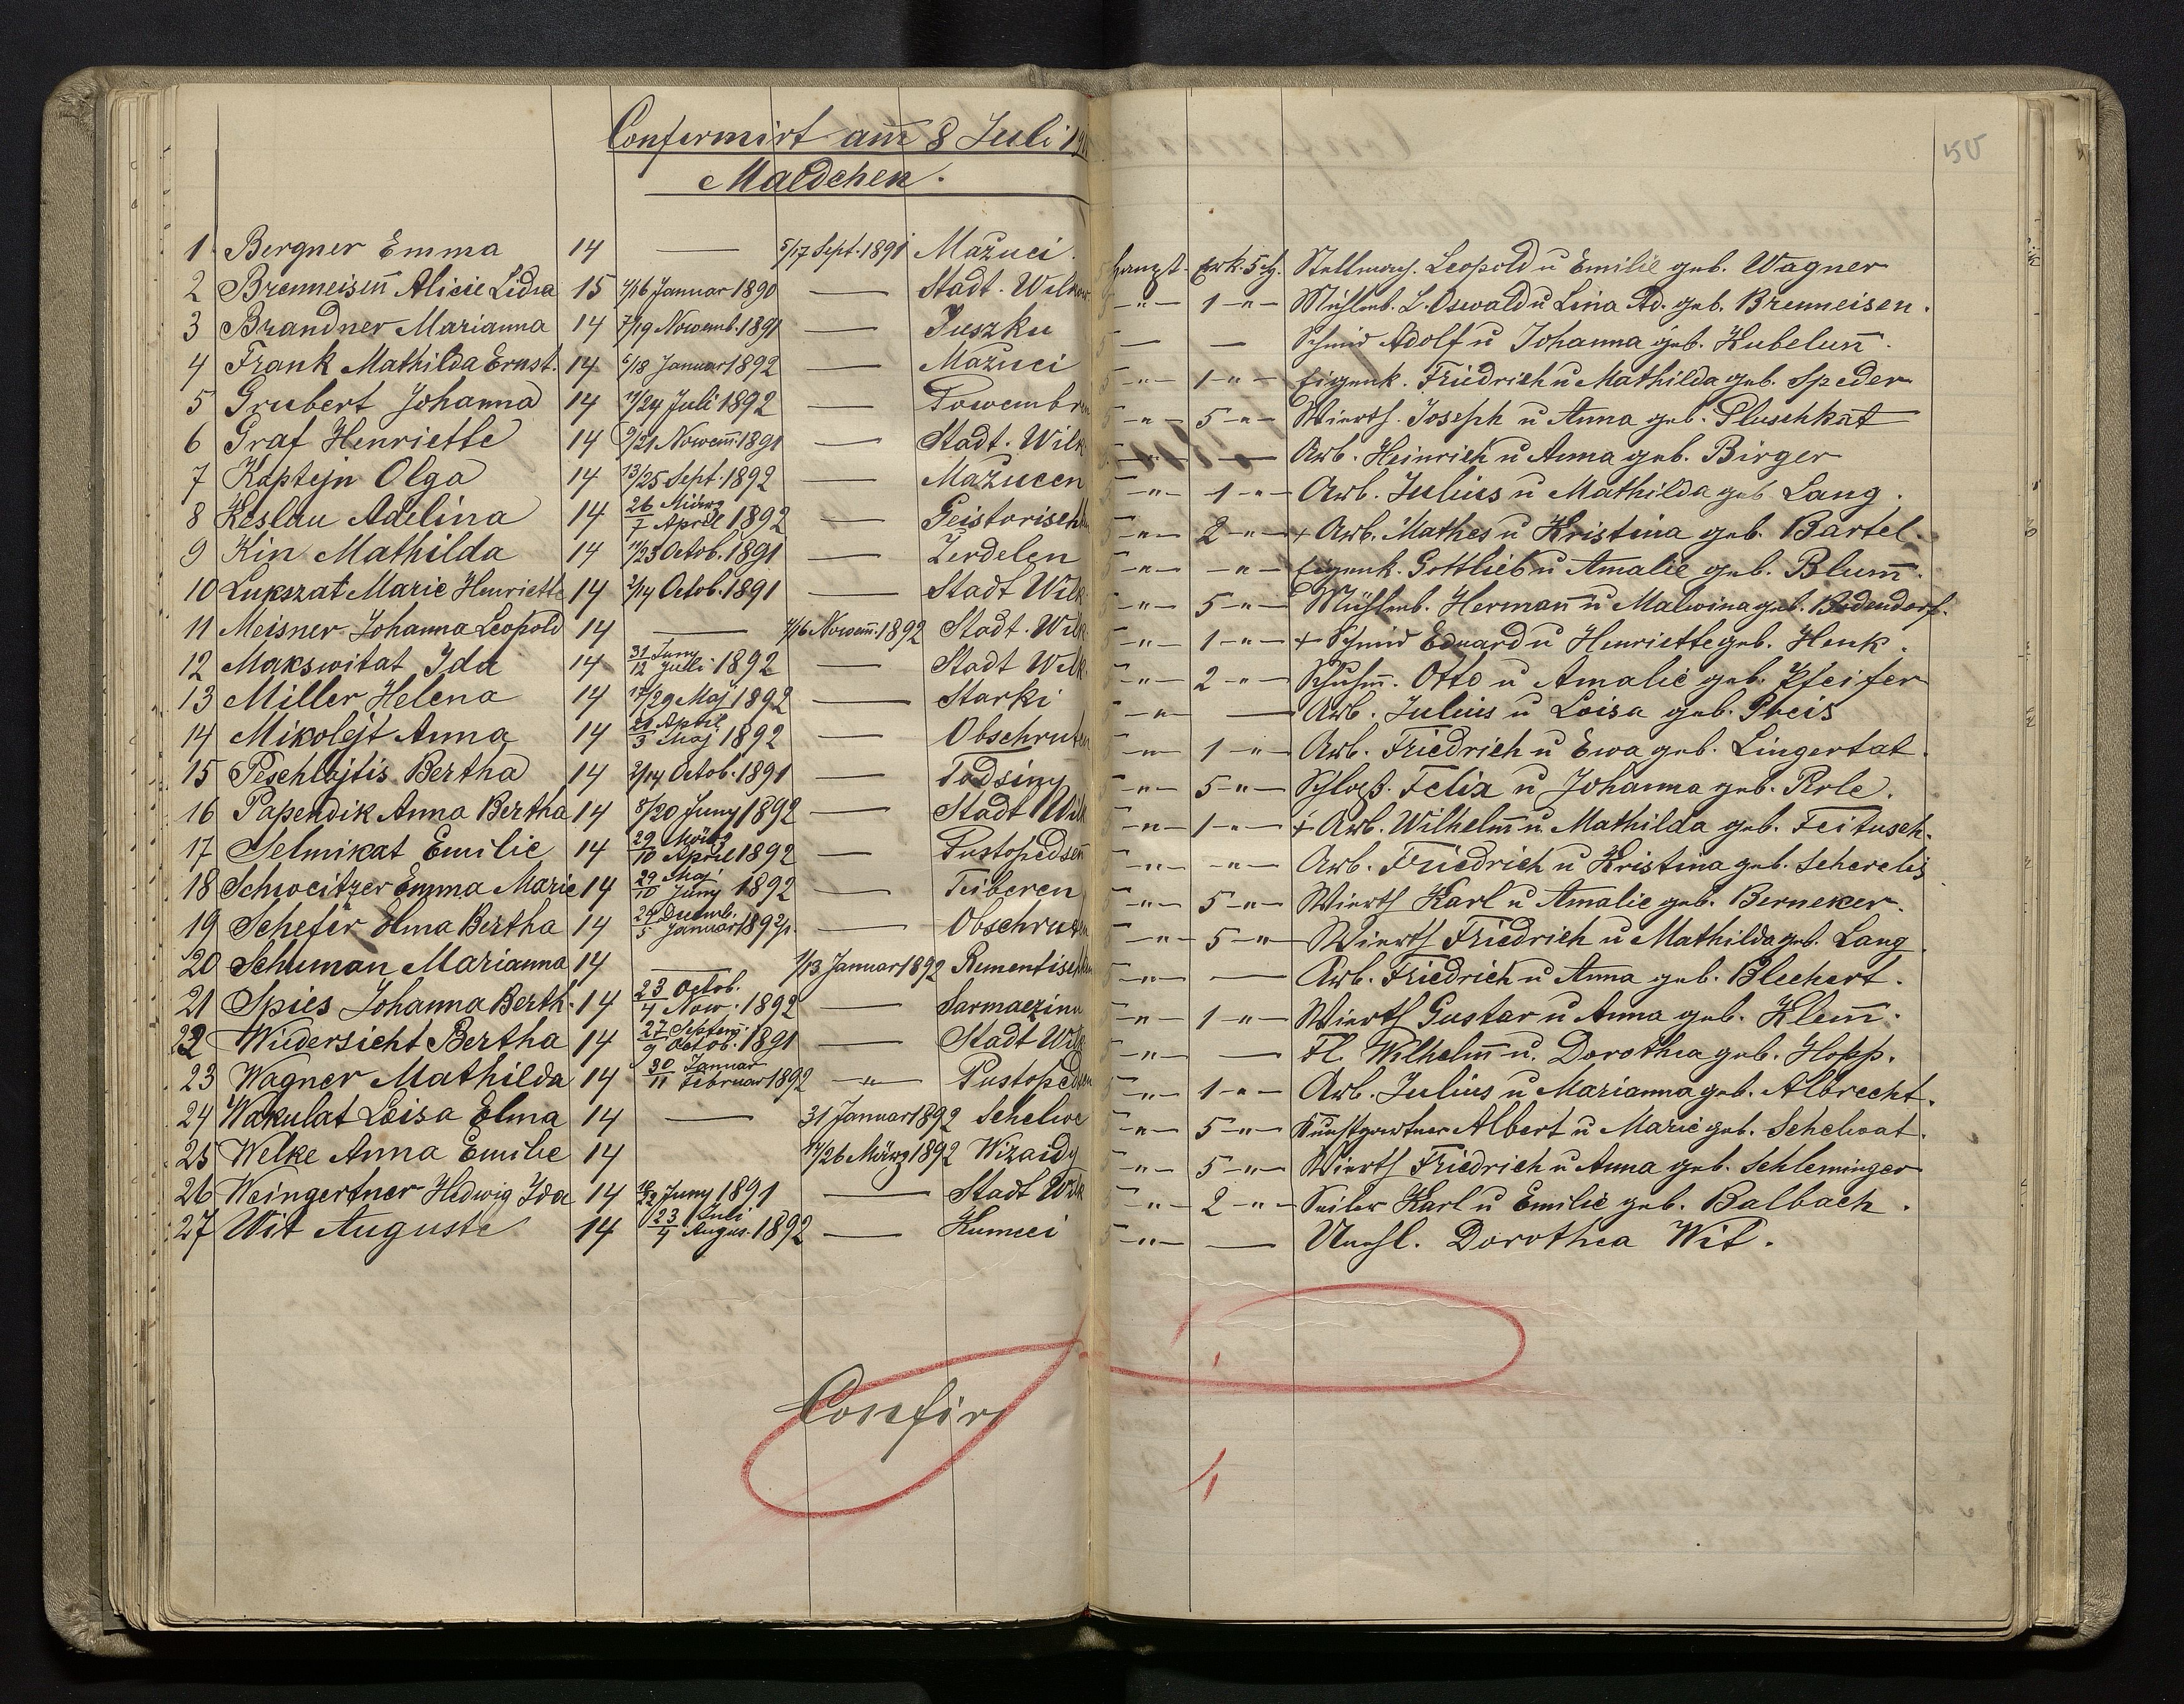 Confermirt am̄ 8 Juli 19
Maedchen.
50
1 Bergner Emma 14 — 5/17 Sept. 1891 Mažuci. haupt. erk. 5 ch. Stellmach. Leopold u Emilie geb. Wagner
2 Brenneiseñ Alicie Lidia 15 4/16 Januar 1890 — Stadt. Wilkow -"- 1 -"- Mühlenb. L. Oswald u Lina Ad. geb. Brenneisen.
3 Brandner Marianna 14 7/19 Nowemb. 1891 — Juszku — — Schmid Adolf u Johanna geb. Kubeluñ.
4 Frank Mathilda Ernst. 14 6/18 Januar 1892 — Mažuci -"- 1 -"- Eigenk. Friedrich u Mathilda geb. Speder
5 Grubert Johanna 14 /24 Juli 1892 — Towembr -"- 5 -"- Wierth. Joseph u Anna geb. Pluschkat
6 Graf Henriette 14 9/21 Nowem̄. 1891 — Stadt. Wilk — Arb. Heinrich u Anna geb. Birger
7 Kaptejn Olga 14 13/25 Sept. 1892 — Mažucen -"- 1 -"- Arb. Julius u Mathilda geb Lang.
8 Keslau Adelina 14 26 März/7 April 1892 — Geistorisch -"- 2 -"- + Arb. Mathes u Kristina geb. Bartel.
9 Kin Mathilda 14 11/23 Octob. 1891 — Zerdelen -"- -"- Eigenk. Gottlieb u Amalie geb. Blum̄.
10 Lukszat Marie Henriette 14 2/14 Octob. 1891 — Stadt Wilk -"- 5 -"- Mühlenb. Hermañ u Malwina geb. Bodendorf.
11 Meisner Johanna Leopold 14 — 4/16 Nowem̄. 1892 Stadt. Wilk -"- 1 -"- + Schmid Eduard u Henriette geb. Henk.
12 Makswitat Ida 14 31 Juny/12 Julli 1892 — Stadt Wilk -"- 2 -"- Schuhm̄. Otto u Amalie geb. Pfeifer
13 Miller Helena 14 17/29 Maj 1892 — Starki -"- — Arb. Julius u Loisa geb. Preis
14 Mikolejt Anna 14 21 April/3 Maj 1892 — Obschruten -"- 1 -"- Arb. Friedrich u Ewa geb. Lingertat.
15 Peschlojtis Bertha 14 2/14 Octob. 1891 — Todsiny -"- 5 -"- Schloß. Felix u Johanna geb. Role.
16 Papendik Anna Bertha 14 8/20 Juny 1892 — Stadt Wilk -"- 1 -"- + Arb. Wilhelm̄ u. Mathilda geb. Feitusch.
17 Selmikat Emilie 14 29 März/10 April 1892 — Pustopedseñ -"- -"- Arb. Friedrich u Kristina geb. Scherelis
18 Schweitzer Emma Marie 14 29 Maj/10 Juny 1892 — Teiberen -"- 5 -"- Wierth Karl u Amalie geb. Berneker.
19 Schefer Elma Bertha 14 24 Decemb./5 Januar 1892/1. — Obschruten -"- 5 -"- Wierth Friedrich u Mathilda geb. Lang
20 Schuman Marianna 14 — 1/13 Januar 1892 Rementisch -"- — Arb. Friedrich u Anna geb. Blechert.
21 Spies Johanna Berth. 14 23 Octob./4 Now. 1892 — Sarmaezinu -"- 1 -"- Wierth Gustav u Anna geb. Klem̄.
22 Wiedersicht Bertha 14 27 Septem̄./9 Octob. 1891 — Stadt Wilk -"- — Fl. Wilhelm̄ u. Dorothea geb. Hopp.
23 Wagner Mathilda 14 30 Januar/11 Februar 1892 -"- Pustoped -"- 1 -"- Arb. Julius u Marianna geb. Albrecht.
24 Wakulat Loisa Elma 14 — 31 Januar 1892 Schelwe -"- 5 -"- Kunstgertner Albert u Marie geb. Schelwat.
25 Welke Anna Emilie 14 14/26 März 1892 Wizaidy -"- 5 -"- Wierth Friedrich u Anna geb. Schleminger
26 Weingertner Hedwig Ida 14 10/22 Juny 1891 — Stadt Wilk -"- 2 -"- Seiler Karl u Emilie geb. Balbach.
27 Wit Auguste 14 23 Juli/4 Augus. 1892 — Kumeci -"- — Unehl. Dorothea Wit.
Confir